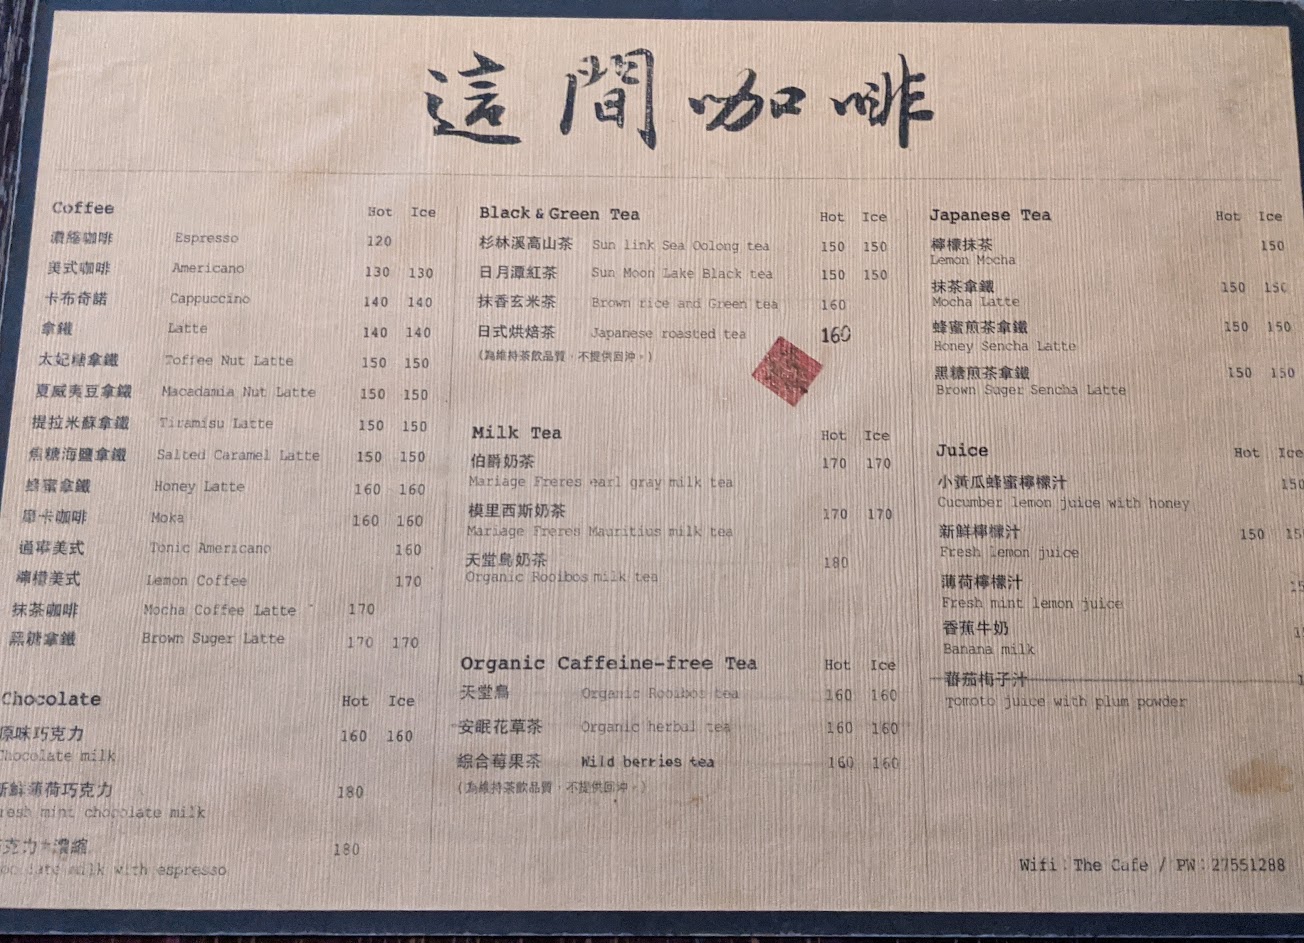 這間咖啡
Coffee Hot Ice
濃縮咖啡 Espresso 120
美式咖啡 Americano 130 130
卡布奇諾 Cappuccino 140 140
拿鐵 Latte 140 140
太妃糖拿鐵 Toffee Nut Latte 150 150
夏威夷豆拿鐵 Macadamia Nut Latte 150 150
提拉米蘇拿鐵 Tiramisu Latte 150 150
焦糖海鹽拿鐵 Salted Caramel Latte 150 150
蜂蜜拿鐵 Honey Latte 160 160
摩卡咖啡 Moka 160 160
通寧美式 Tonic Americano 160
檸檬美式 Lemon Coffee 170
抹茶咖啡 Mocha Coffee Latte 170
黑糖拿鐵 Brown Suger Latte 170 170
Chocolate Hot Ice
原味巧克力 160 160
Chocolate milk
新鮮薄荷巧克力 180
fresh mint chocolate milk
克力+濃縮 180
milk with espresso
Black & Green Tea Hot Ice
杉林溪高山茶 Sun link Sea Oolong tea 150 150
日月潭紅茶 Sun Moon Lake Black tea 150 150
抹香玄米茶 Brown rice and Green tea 160
日式烘焙茶 Japanese roasted tea 160
(為維持茶飲品質，不提供回沖。)
Milk Tea Hot Ice
伯爵奶茶 170 170
Mariage Freres earl gray milk tea
模里西斯奶茶 170 170
Mariage Freres Mauritius milk tea
天堂鳥奶茶 180
Organic Rooibos milk tea
Organic Caffeine-free Tea Hot Ice
天堂鳥 Organic Rooibos tea 160 160
安眠花草茶 Organic herbal tea 160 160
綜合莓果茶 Wild berries tea 160 160
(為維持茶飲品質，不提供回沖。)
Japanese Tea Hot Ice
檸檬抹茶 150
Lemon Mocha
抹茶拿鐵 150 150
Mocha Latte
蜂蜜煎茶拿鐵 150 150
Honey Sencha Latte
黑糖煎茶拿鐵 150 150
Brown Suger Sencha Latte
Juice Hot Ice
小黃瓜蜂蜜檸檬汁 150
Cucumber lemon juice with honey
新鮮檸檬汁 150 15
Fresh lemon juice
薄荷檸檬汁 15
Fresh mint lemon juice
香蕉牛奶 1
Banana milk
蕃茄梅子汁 1
Tomoto juice with plum powder
Wifi：The Cafe / PW：27551288